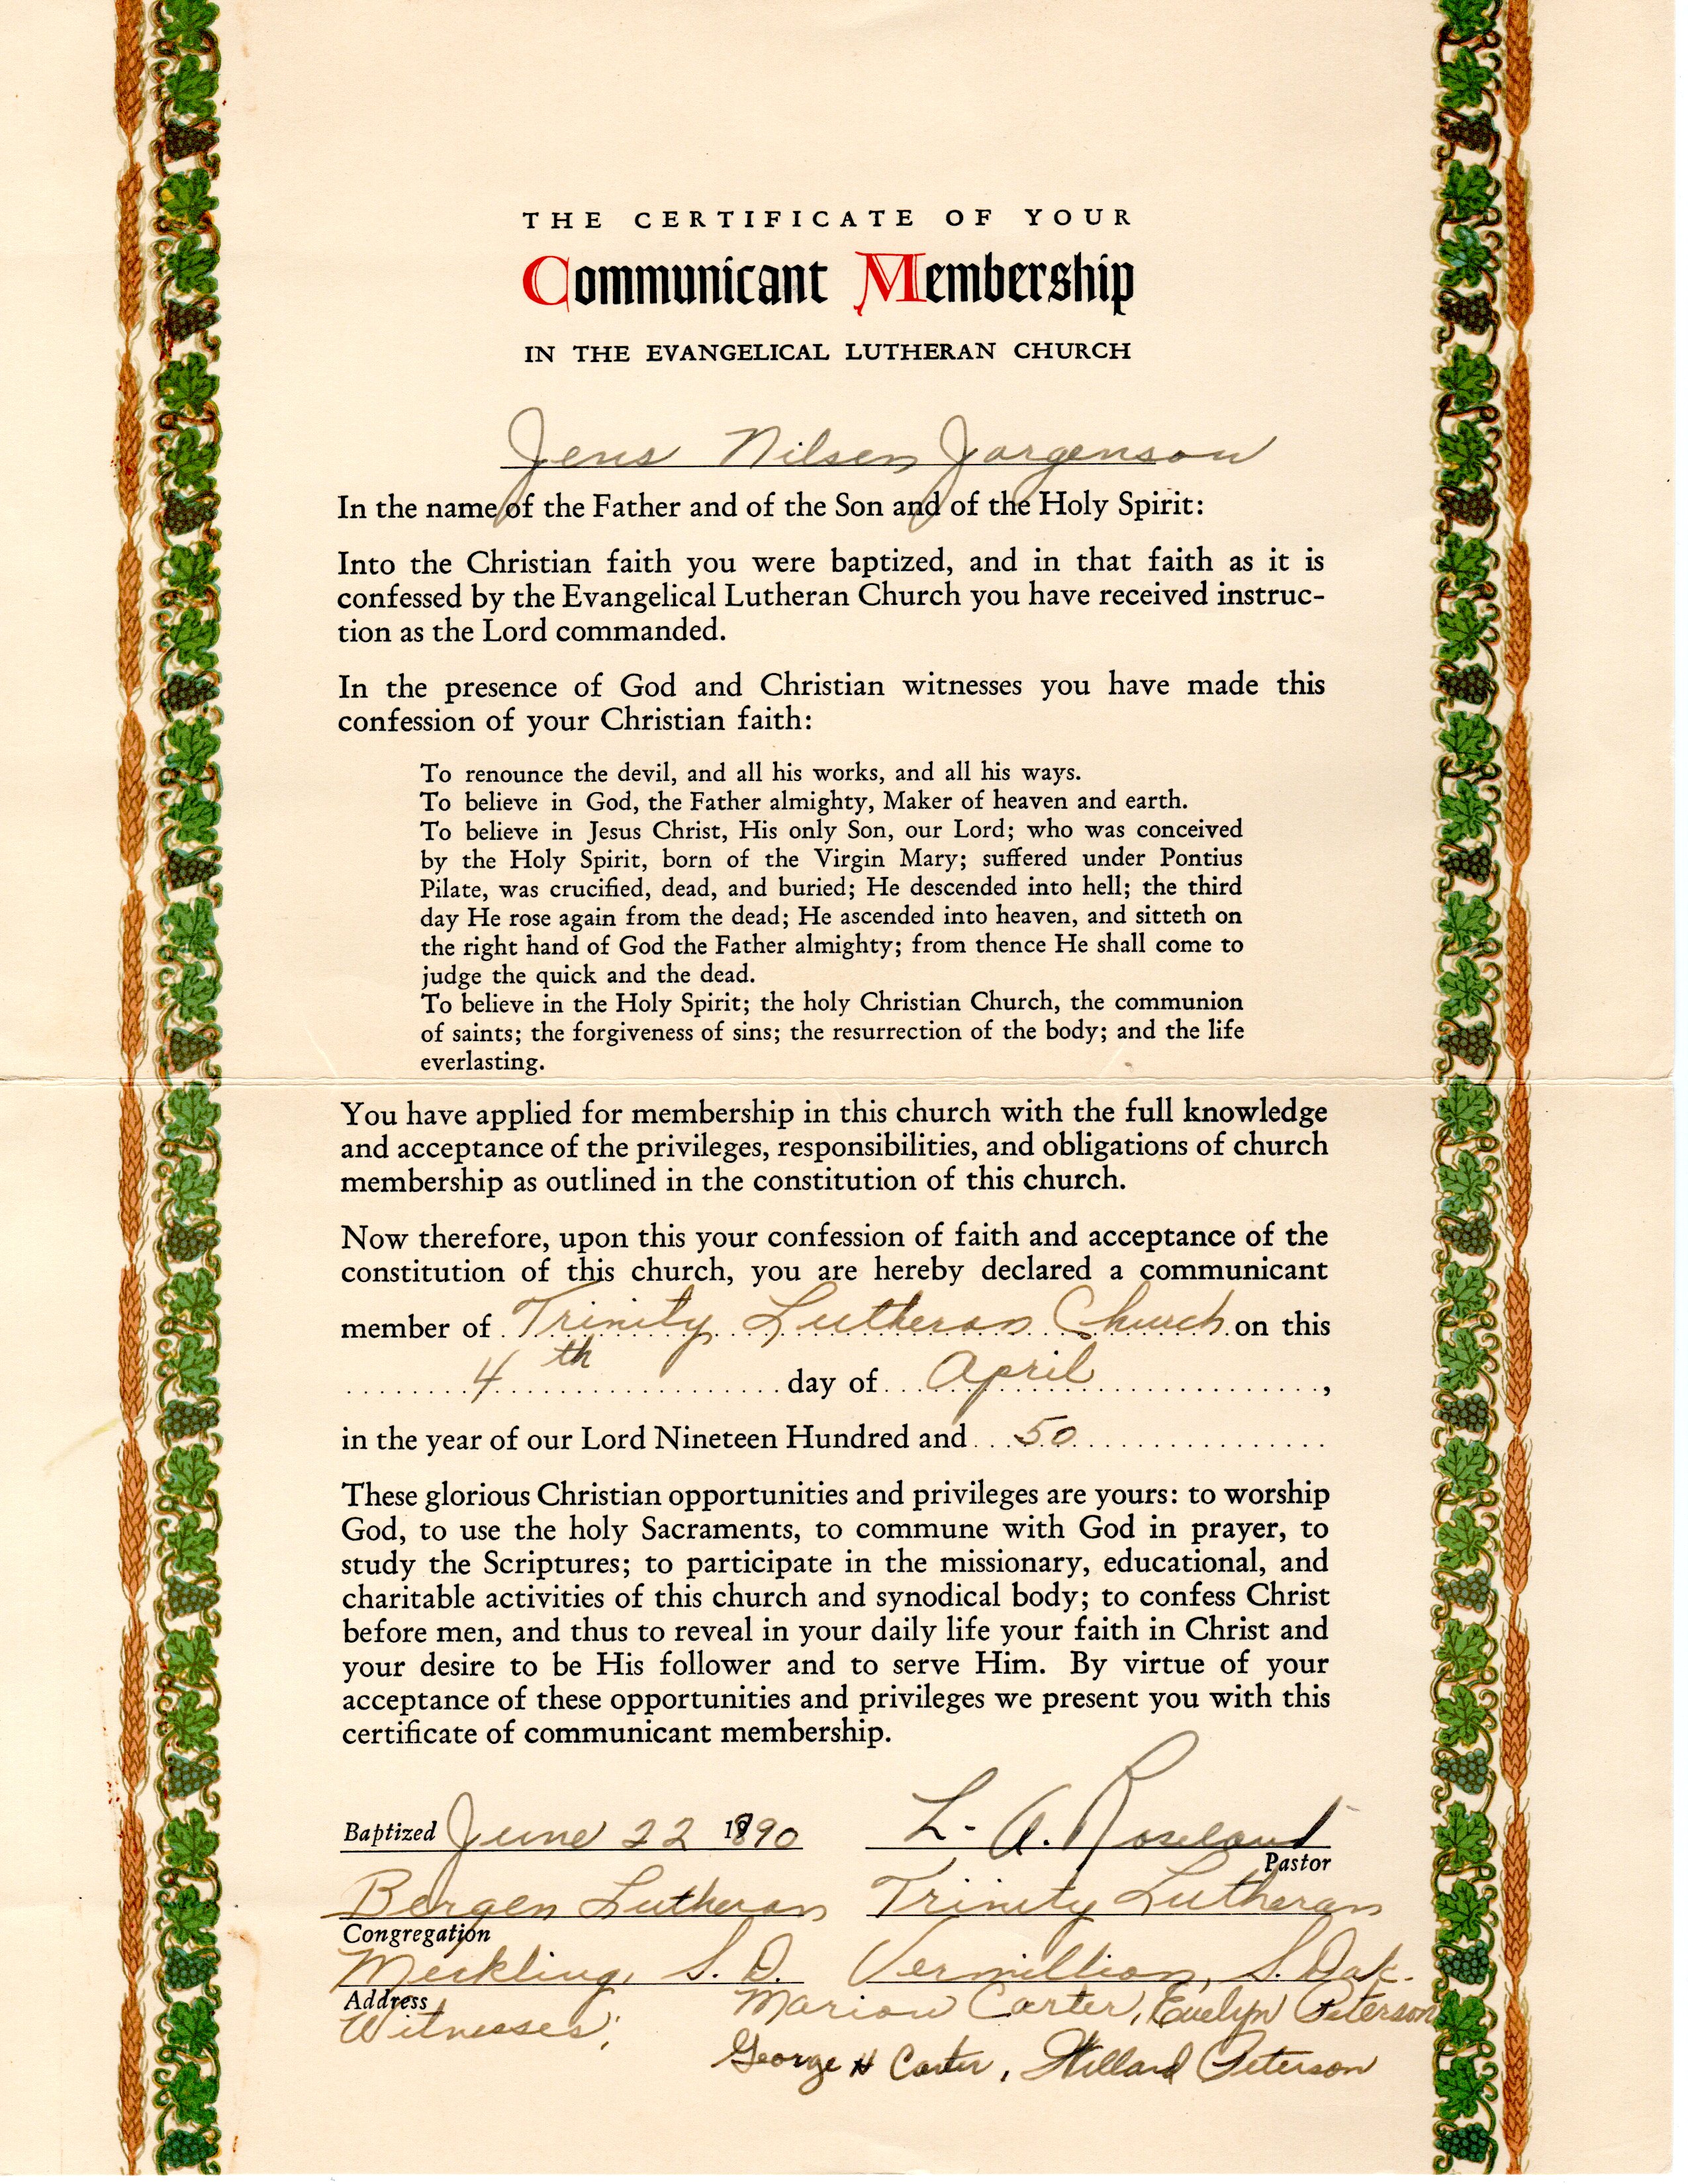 THE CERTIFICATE OF YOUR
Communicant Membership
IN THE EVANGELICAL LUTHERAN CHURCH
Jens Nilsen Jorgenson
In the name of the Father and of the Son and of the Holy Spirit:
Into the Christian faith you were baptized, and in that faith as it is
confessed by the Evangelical Lutheran Church you have received instruc-
tion as the Lord commanded.
In the presence of God and Christian witnesses you have made this
confession of your Christian faith:
To renounce the devil, and all his works, and all his ways.
To believe in God, the Father almighty, Maker of heaven and earth.
To believe in Jesus Christ, His only Son, our Lord; who was conceived
by the Holy Spirit, born of the Virgin Mary; suffered under Pontius
Pilate, was crucified, dead, and buried; He descended into hell; the third
day He rose again from the dead; He ascended into heaven, and sitteth on
the right hand of God the Father almighty; from thence He shall come to
judge the quick and the dead.
To believe in the Holy Spirit; the holy Christian Church, the communion
of saints; the forgiveness of sins; the resurrection of the body; and the life
everlasting.
You have applied for membership in this church with the full knowledge
and acceptance of the privileges, responsibilities, and obligations of church
membership as outlined in the constitution of this church.
Now therefore, upon this your confession of faith and acceptance of the
constitution of this church, you are hereby declared a communicant
member of Trinity Lutheran Church on this
4th day of April,
in the year of our Lord Nineteen Hundred and 50
These glorious Christian opportunities and privileges are yours: to worship
God, to use the holy Sacraments, to commune with God in prayer, to
study the Scriptures; to participate in the missionary, educational, and
charitable activities of this church and synodical body; to confess Christ
before men, and thus to reveal in your daily life your faith in Christ and
your desire to be His follower and to serve Him. By virtue of your
acceptance of these opportunities and privileges we present you with this
certificate of communicant membership.
Baptized June 22 1890 L. A. Roseland
Pastor
Bergen Lutheran Trinity Lutheran
Congregation
Meckling, S. D. Vermillion, S. Dak.
Address
Witnesses: Marion Carter, Evelyn Peterson
George H Carter, Willard Peterson